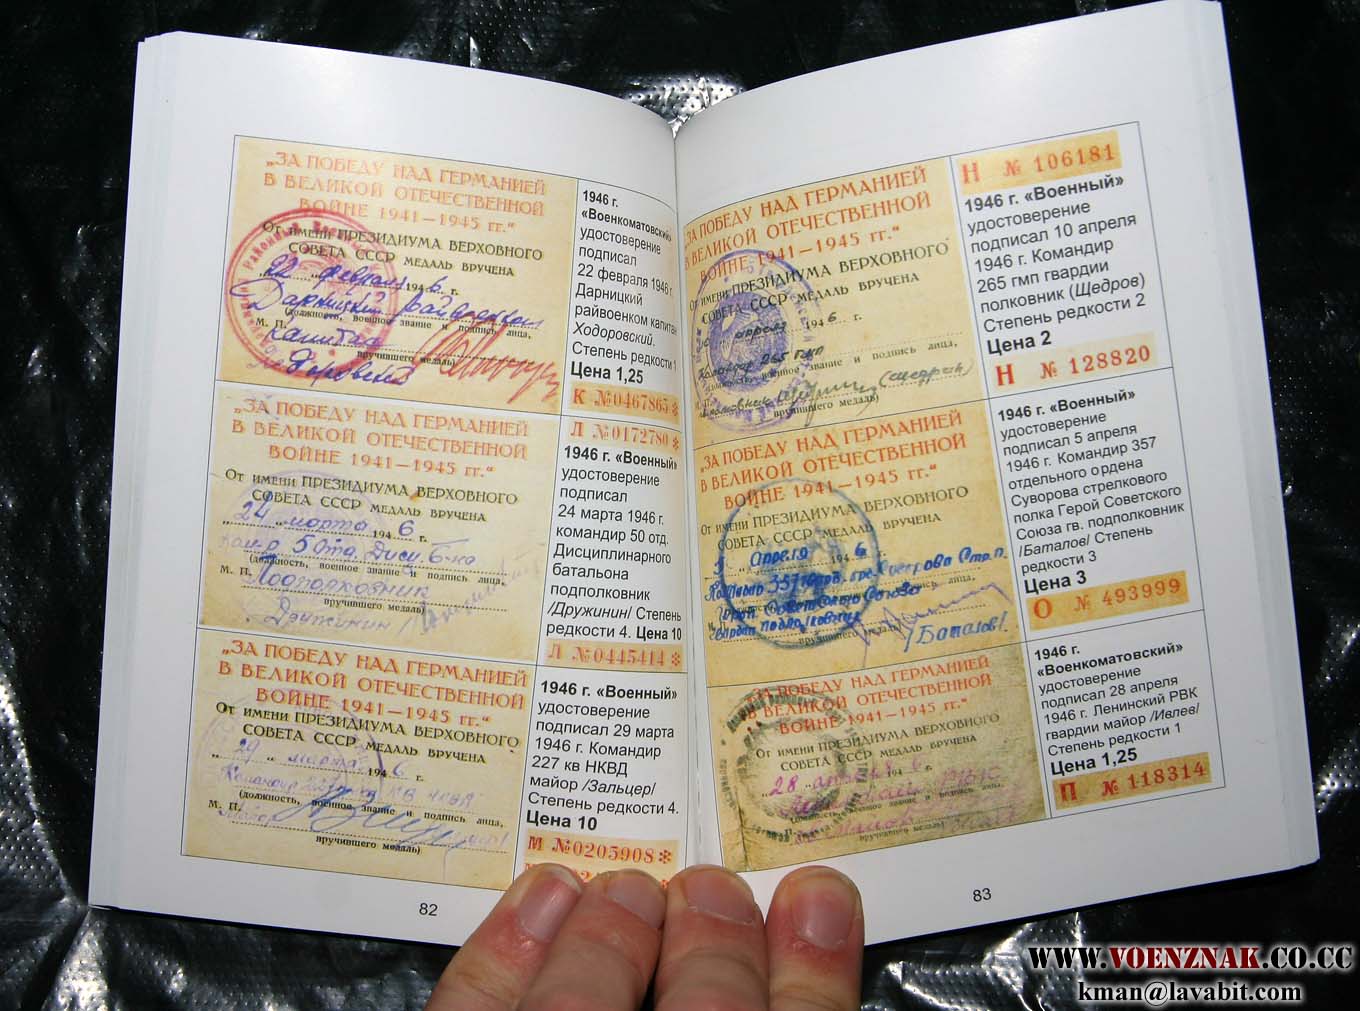 „ЗА ПОБЕДУ НАД ГЕРМАНИЕЙ
В ВЕЛИКОЙ ОТЕЧЕСТВЕННОЙ
ВОЙНЕ 1941—1945 гг.“
От имени ПРЕЗИДИУМА ВЕРХОВНОГО
СОВЕТА СССР МЕДАЛЬ ВРУЧЕНА
„22 „ февраля 1946 г.
Дарницкий Райвоенком
(должность, военное звание и подпись лица,
М. П. Капитан
вручившего медаль)
1946 г.
«Военкоматовский»
удостоверение
подписал
22 февраля 1946 г.
Дарницкий
райвоенком капитан
Ходоровский.
Степень редкости 1
Цена 1,25
К №0467865
„ЗА ПОБЕДУ НАД ГЕРМАНИЕЙ
В ВЕЛИКОЙ ОТЕЧЕСТВЕННОЙ
ВОЙНЕ 1941—1945 гг.“
От имени ПРЕЗИДИУМА ВЕРХОВНОГО
СОВЕТА СССР МЕДАЛЬ ВРУЧЕНА
„24 „ марта 1946 г.
Ком-р 50 отд. Дисц. б-на
(должность, военное звание и подпись лица,
М. П. Подполковник
вручившего медаль)
/Дружинин/
Л №0172780
1946 г. «Военный»
удостоверение
подписал
24 марта 1946 г.
командир 50 отд.
Дисциплинарного
батальона
подполковник
/Дружинин/ Степень
редкости 4. Цена 10
Л №0445414
„ЗА ПОБЕДУ НАД ГЕРМАНИЕЙ
В ВЕЛИКОЙ ОТЕЧЕСТВЕННОЙ
ВОЙНЕ 1941—1945 гг.“
От имени ПРЕЗИДИУМА ВЕРХОВНОГО
СОВЕТА СССР МЕДАЛЬ ВРУЧЕНА
„29 „ марта 1946 г.
Командир 227 кв НКВД
(должность, военное звание и подпись лица,
М. П. Майор
вручившего медаль)
1946 г. «Военный»
удостоверение
подписал 29 марта
1946 г. Командир
227 кв НКВД
майор /Зальцер/
Степень редкости 4.
Цена 10
М №0205908
82
„ЗА ПОБЕДУ НАД ГЕРМАНИЕЙ
В ВЕЛИКОЙ ОТЕЧЕСТВЕННОЙ
ВОЙНЕ 1941—1945 гг.“
От имени ПРЕЗИДИУМА ВЕРХОВНОГО
СОВЕТА СССР МЕДАЛЬ ВРУЧЕНА
апреля 1946 г.
Командир 265 гмп
(должность, военное звание и подпись лица,
М. П. полковник (Щедров)
вручившего медаль)
Н № 106181
1946 г. «Военный»
удостоверение
подписал 10 апреля
1946 г. Командир
265 гмп гвардии
полковник (Щедров)
Степень редкости 2
Цена 2
Н № 128820
„ЗА ПОБЕДУ НАД ГЕРМАНИЕЙ
В ВЕЛИКОЙ ОТЕЧЕСТВЕННОЙ
ВОЙНЕ 1941—1945 гг.“
От имени ПРЕЗИДИУМА ВЕРХОВНОГО
СОВЕТА СССР МЕДАЛЬ ВРУЧЕНА
5 „ апреля 1946 г.
Командир 357 Суворова Стр. п.
(должность, военное звание и подпись лица,
М. П. Герой Советского Союза
гвардии подполковник
вручившего медаль)
/Баталов/.
1946 г. «Военный»
удостоверение
подписал 5 апреля
1946 г. Командир 357
отдельного ордена
Суворова стрелкового
полка Герой Советского
Союза гв. подполковник
/Баталов/ Степень
редкости 3
Цена 3
О № 493999
„ЗА ПОБЕДУ НАД ГЕРМАНИЕЙ
В ВЕЛИКОЙ ОТЕЧЕСТВЕННОЙ
ВОЙНЕ 1941—1945 гг.“
От имени ПРЕЗИДИУМА ВЕРХОВНОГО
СОВЕТА СССР МЕДАЛЬ ВРУЧЕНА
„28 апреля 1946 г.
(должность, военное звание и подпись лица,
вручившего медаль)
1946 г.
«Военкоматовский»
удостоверение
подписал 28 апреля
1946 г. Ленинский РВК
гвардии майор /Ивлев/
Степень редкости 1
Цена 1,25
П № 118314
83
WWW.VOENZNAK.CO.CC
kman@lavabit.com